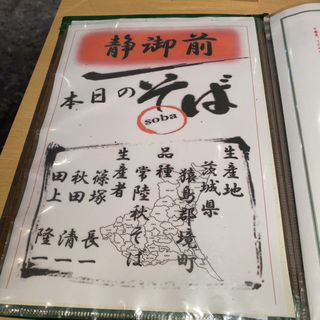 静御前
本日のそば
soba
生産地
茨城県
猿島郡境町
品種
常陸秋そば
生産者
篠塚 長一
秋田 清一
田上 隆一